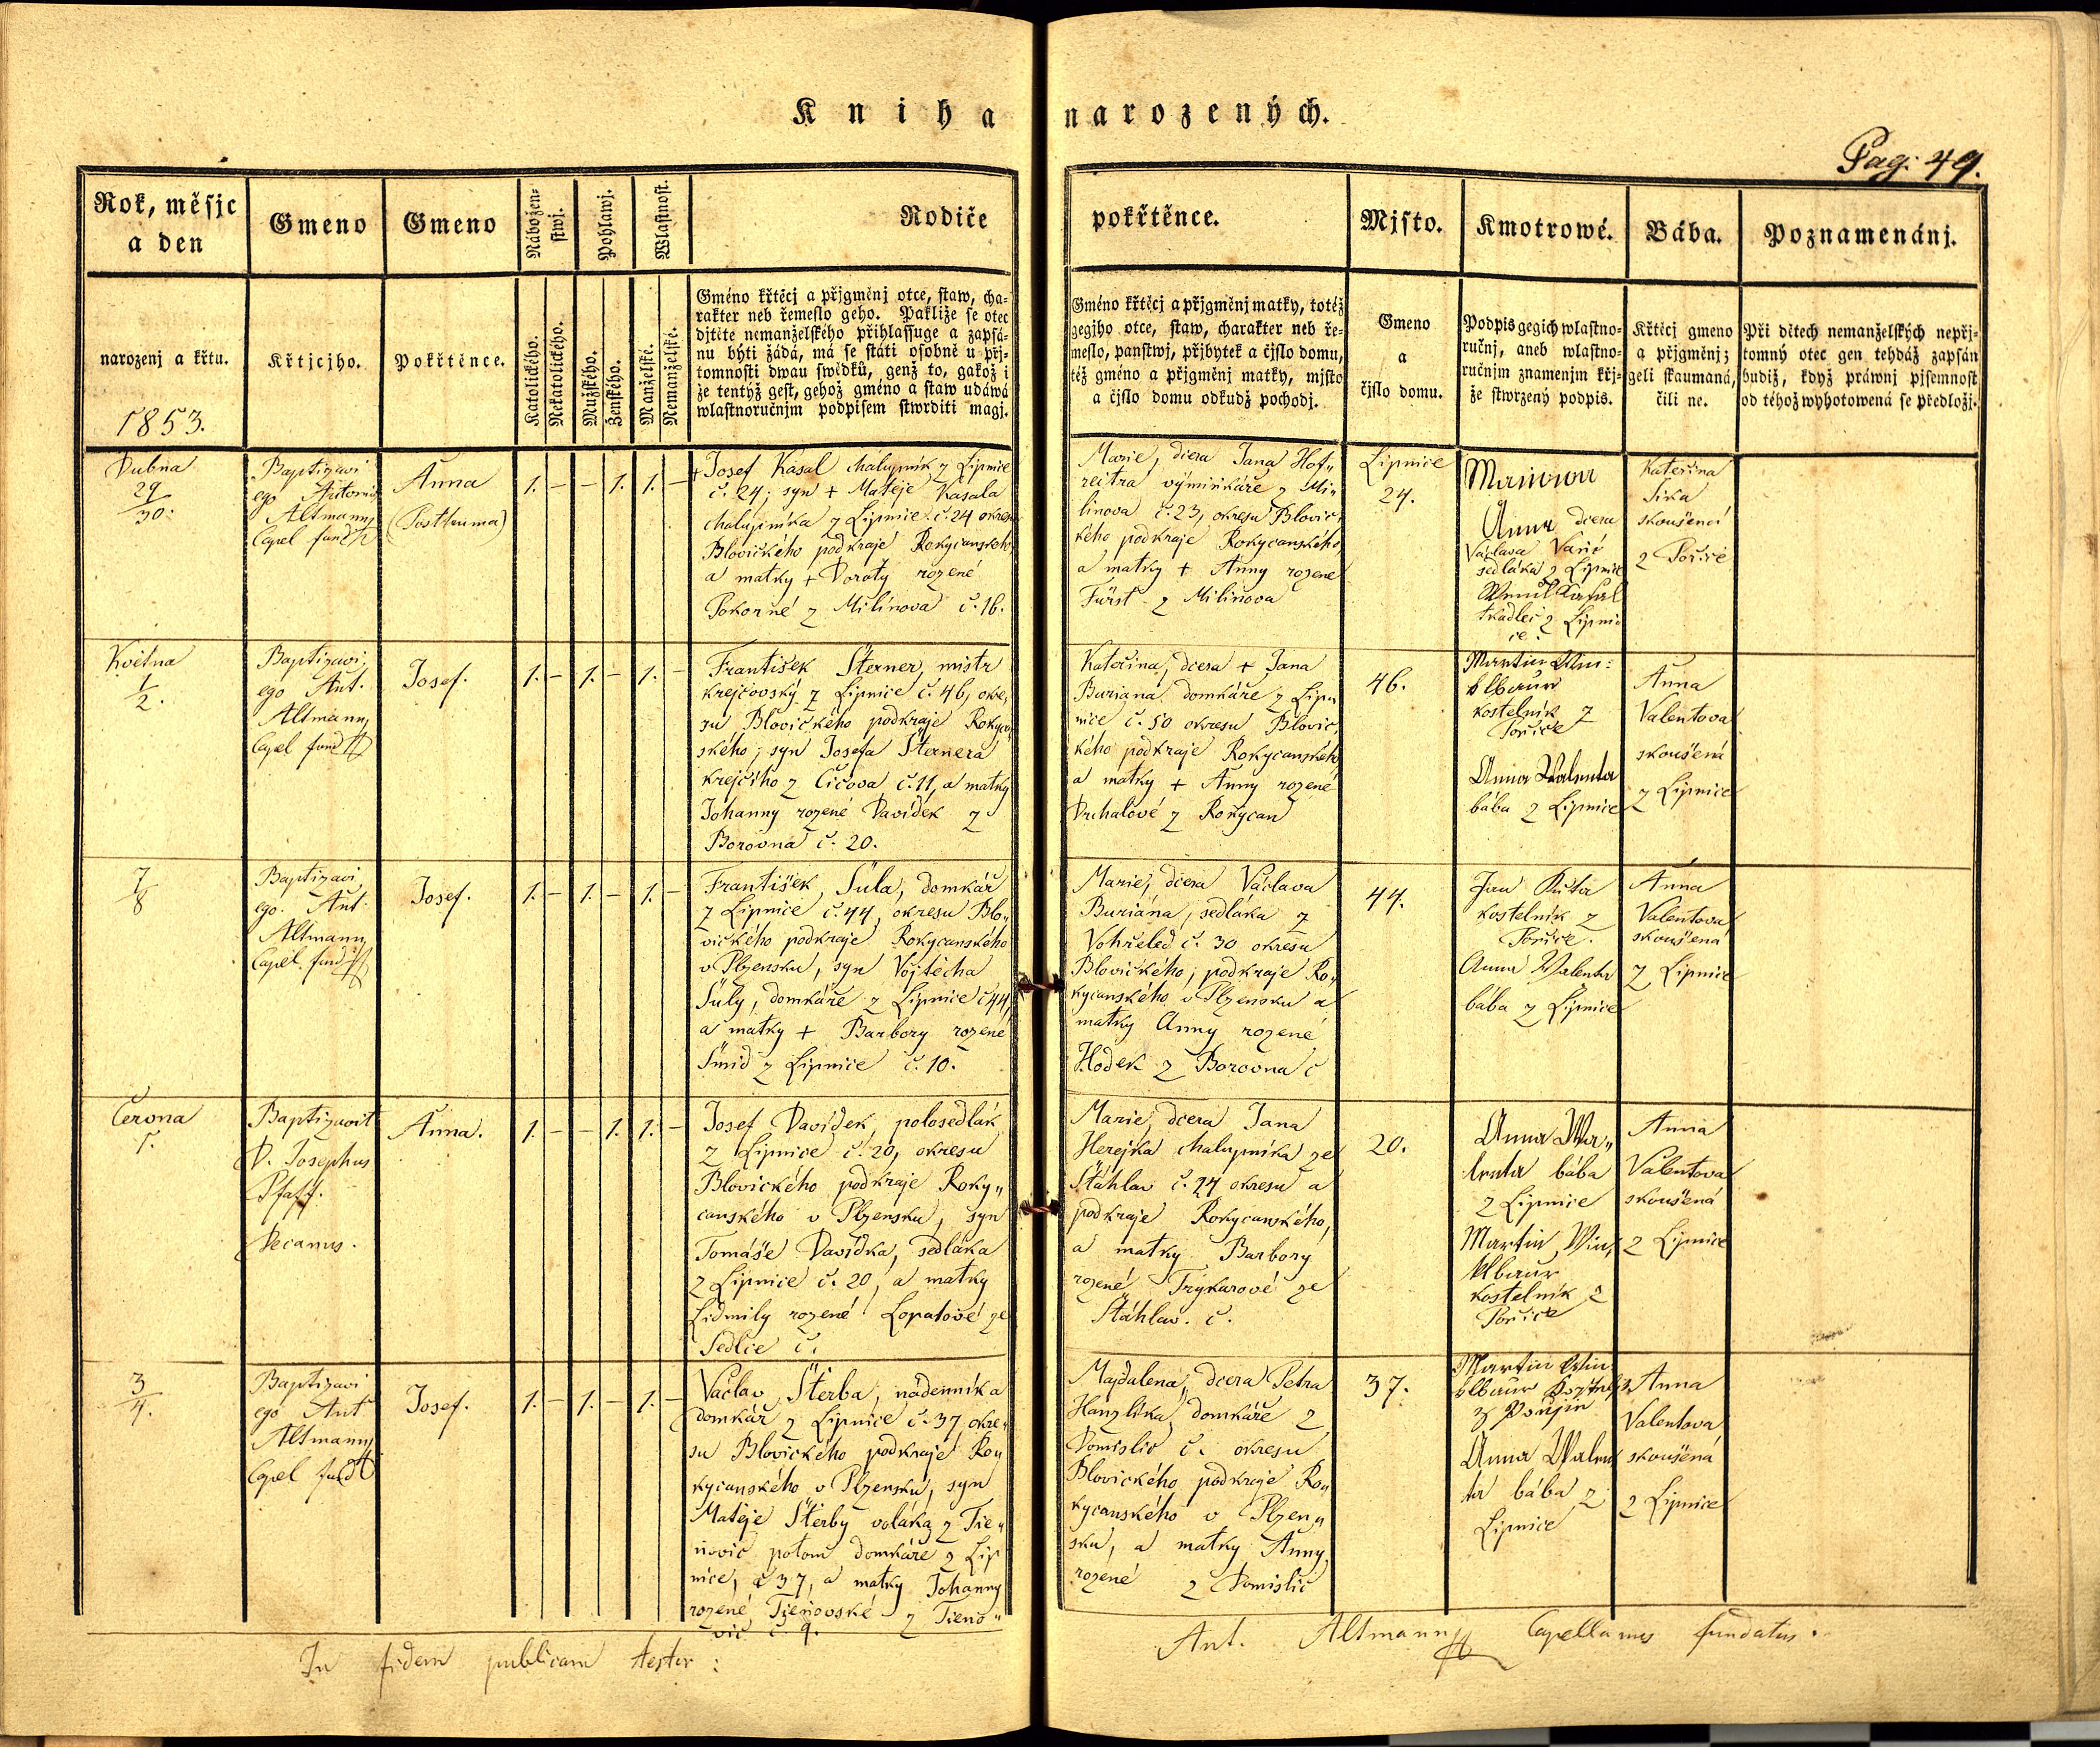 Kniha narozených.
Pag: 49.
Rok, měsjc a den
Gmeno
Gmeno
Nábožen-stwj.
Pohlawj.
Wlastnost.
Rodiče pokřtěnce.
Mjsto.
Kmotrowé.
Bába.
Poznamenánj.
narozenj a křtu.
1853.
Křtjcjho.
Pokřtěnce.
Katolického.
Nekatolického.
Mužského.
Ženského.
Manželské.
Nemanželské.
Gméno křtěcj a přjgměnj otce, staw, cha-
rakter neb řemeslo geho. Pakliže se otec
djtěte nemanželského přihlassuge a zapsá-
nu býti žádá, má se státi osobně u přj-
tomnosti dwau swědků, genž to, gakož i
že tentýž gest, gehož gméno a staw udáwá
wlastnoručnjm podpisem stwrditi magj.
Gméno křtěcj a přjgměnj matky, totéž
gegjho otce, staw, charakter neb ře-
meslo, panstwj, přjbytek a čjslo domu,
též gméno a přjgměnj matky, mjsto
a čjslo domu odkudž pochodj.
Gmeno
a
čjslo domu.
Podpis gegich wlastno-
ručnj, aneb wlastno-
ručnjm znamenjm křj-
že stwrzený podpis.
Křtěcj gmeno
a přjgměnj;
geli skaumaná,
čili ne.
Při dětech nemanželských nepřj-
tomný otec gen tehdáž zapsán
budiž, když práwnj pjsemnost
od téhož wyhotowená se předložj.
Dubna
29
30.
Baptizavi
ego Antonius
Altmann
Capel fund
Anna
(Posthuma)
1. – – 1. 1. –
+ Josef Kasal chalupník z Lipnice
č. 24; syn + Matěje Kasala
chalupníka z Lipnice č. 24 okresu
Blovického podkraje Rokycanského
a matky + Doroty rozené
Pokorné z Milínova č. 16.
Marie, dcera Jana Hof„
reitra výminkáře z Mi„
línova č. 23, okresu Blovic„
kého podkraje Rokycanského
a matky + Anny rozené
Fürst z Milinova
Lipnice
24.
Anna dcera
Václava
sedláka z Lipnice
Kasal
tkadlec z Lipni
ce.
Kateřina
Sika
skoušená
z Pořiče
Května
1
2.
Baptizavi
ego Ant.
Altmann
Capel fund
Josef.
1. – 1. – 1. –
František Šterner, mistr
krejčovský z Lipnice č. 46, okre„
su Blovického podkraje Rokycan
ského; syn Josefa Šternera
krejčího z Čičova č. 11, a matky
Johanny rozené Davídek z
Borovna č. 20.
Kateřina, dcera + Jana
Buriana domkáře z Lip„
nice č. 50 okresu Blovic„
kého podkraje Rokycanského
a matky + Anny rozené
Duchalové z Rokycan
46.
Martin Win:
klbaur
kostelník z
Pořiče
Anna Walenta
bába z Lipnice
Anna
Valentova
skoušená
z Lipnice
7
8
Baptizavi
ego. Ant.
Altmann
Capel. fund
Josef.
1. – 1. – 1. –
František, Šula, domkář
z Lipnice č. 44, okresu Blo„
vického podkraje Rokycanského
v Plzensku, syn Vojtěcha
Šuly, domkáře z Lipnice č 44,
a matky + Barbory rozené
Šmid z Lipnice č. 10.
Marie, dcera Václava
Buriána, sedláka z
Vohřeled č. 30 okresu
Blovického, podkraje Ro„
kycanského v Plzensku a
matky Anny rozené
Hodek z Borovna č
44.
Jan Kuta
kostelník z
Pořiče.
Anna Walenta
bába z Lipnice
Anna
Valentova
skoušená
z Lipnice
Června
1.
Baptizavit
D. Josephus
Pfaff.
Decanus.
Anna.
1. – – 1. 1. –
Josef Davídek, polosedlák
z Lipnice č. 20, okresu
Blovického podkraje Roky„
canského v Plzensku, syn
Tomáše Davídka, sedláka
z Lipnice č. 20, a matky
Lidmily rozené Lopatové ze
Sedlce č.
Marie, dcera Jana
Herejka chalupníka ze
Štáhlav č. 24 okresu a
podkraje Rokycanského,
a matky Barbory
rozené Trykarové ze
Štáhlav. č.
20.
Anna Wa„
lenta bába
z Lipnice
Martin Win„
klbaur
kostelník z
Pořiče
Anna
Valentova
skoušená
z Lipnice
3
4.
Baptizavi
ego Ant
Altmann
Capel fund
Josef.
1. – 1. – 1. –
Václav Šterba, nádenník a
domkář z Lipnice č. 37 okre„
su Blovického podkraje Ro„
kycanského v Plzensku, syn
Matěje Štěrby voláka z Tie„
ňovic potom domkáře z Lip
nice, č 37, a matky Johanny
rozené Tieňovské z Tieňo„
vic č 9.
Majdalena, dcera Petra
Hanzlíka, domkáře z
Domislic č. okresu
Blovického podkraje Ro„
kycanského v Plzen„
sku, a matky Anny
rozené z Domislic
37.
Martin Win
klbaur
Anna Walen
ta bába z
Lipnice
Anna
Valentova
skoušená
z Lipnice
In fidem publicam testor:
Ant. Altmann Capellanus fundatus.